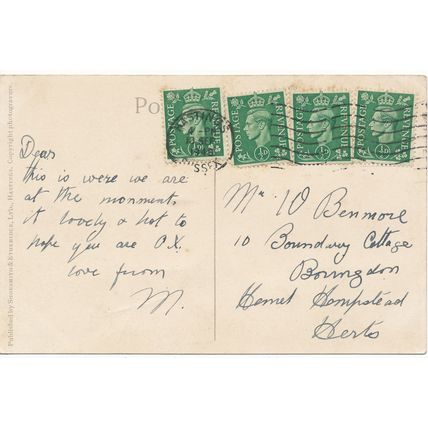 Po
POSTAGE REVENUE
POSTAGE REVENUE ½D
POSTAGE REVENUE ½D
POSTAGE REVENUE ½D
HASTINGS
SUSSEX
Dear
this is were we are
at the monments
it lovely & hot to
hope you are O.K.
love from
M.
Mr
Benmore
10 Boundary Cottage
Bovingdon
Hemel Hempstead
Herts
Published by Shoesmith & Etheridge, Ltd., Hastings. Copyright photogravure.